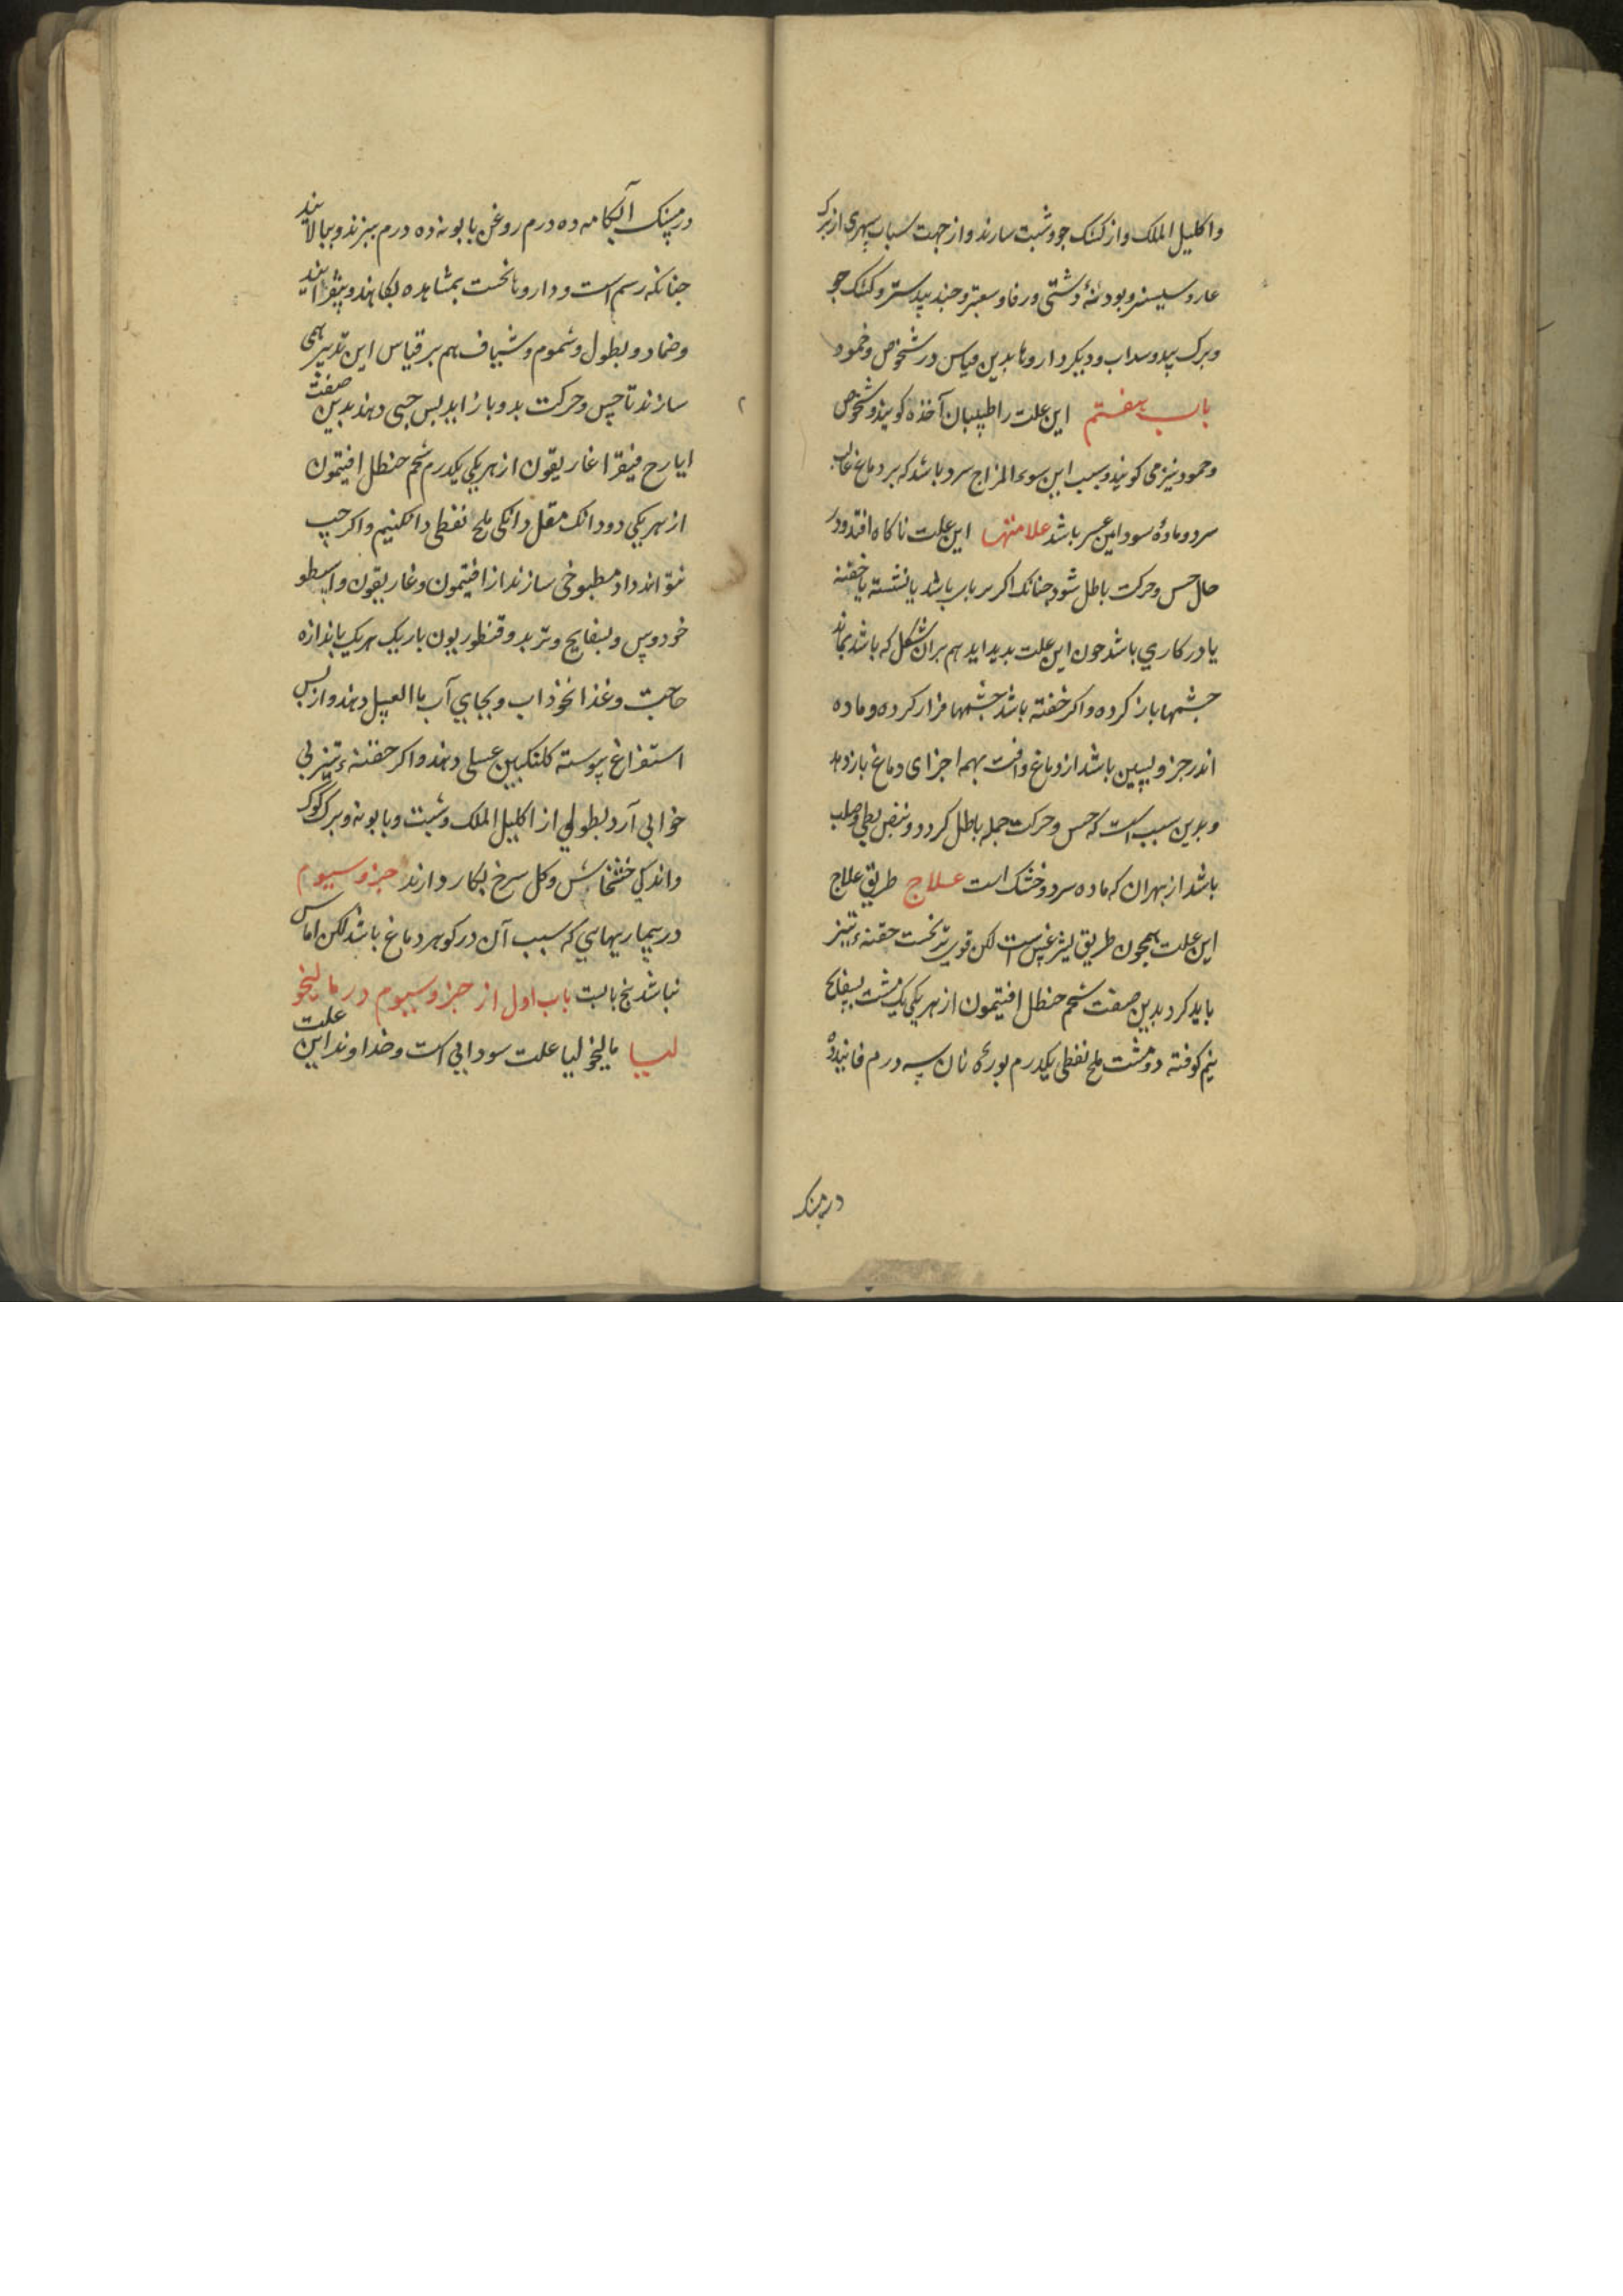 واکلیل الملک واز کشک جو وشبت سازند واز جهت سبات سهری از برک
غار وسیسنبر وبودنهٔ دشتی ورفا وسعتر وجندبیدستر وکشک جو
وبرک بید وسداب ودیکر داروها بدین قیاس در شخوص وخمود
باب هفتم این علت را طبیبان آخذه کویند وشخوص
وجمود نیز می کویند وسبب این سوء المزاج سرد باشد که بر دماغ غالب
سرد وماده سودا این عسر باشد علامتها این علت ناکاه افتد ودر
حال حس وحرکت باطل شود جنانک اکر بر بای باشد یا نشسته یا خفته
یا در کاری باشد جون این علت بدید اید هم بران شکل که باشد بماند
جشمها باز کرده واکر خفته باشد جشمها فراز کرده وماده
اندر جزو پسین باشد از دماغ وافت بهمه اجزای دماغ باز دهد
وبدین سبب است که حس وحرکت جمله باطل کردد ونبض بطی وصلب
باشد از بهر ان که ماده سرد وخشک است علاج طریق علاج
این علت همجون طریق لیثرغس است لکن قوی تر نخست حقنهء تیز
باید کرد بدین صفت شحم حنظل افتیمون از هر یکی یک مشت بسفایج
نیم کوفته دو مشت ملح نفطی یکدرم بورهٔ نان سه درم فانید ده
درمسنک
درمسنک آبکامه ده درم روغن بابونه ده درم ببزند وببالایند
جنانکه رسم است وداروها نخست بمشاهده بکاهند وبیفزایند
وضماد ونطول وشموم وشیاف هم بر قیاس این تدبیر همی
سازند تا حس وحرکت بدو باز اید بس حبی دهند بدین صفت
ایارج فیقرا غاریقون از هر یکی یکدرم شحم حنظل افتیمون
از هر یکی دو دانک مقل دانکی ملح نفطی دانکنیم واکر حب
نتواند داد مطبوخی سازند از افتیمون وغاریقون واسطو
خودوس وبسفایج وتربد وقنطوریون باریک هر یک باندازه
حاجت وغذا نخوذاب وبجای آب ماالعسل دهند واز بس
استفراغ پیوسته کلنکبین عسلی دهند واکر حقنهء تیز بی
خوابی آرد نطولی از اکلیل الملک وشبت وبابونه وبرک کوک
واندکی خشخاش وکل سرخ بکار دارند جزو سیوم
در بیماریهایی که سبب آن در کوهر دماغ باشد لکن اماس
نباشد پنج بابست باب اول از جزو سیوم در مالیخو
لیا مالیخولیا علت سودایی است وخداوند این علت